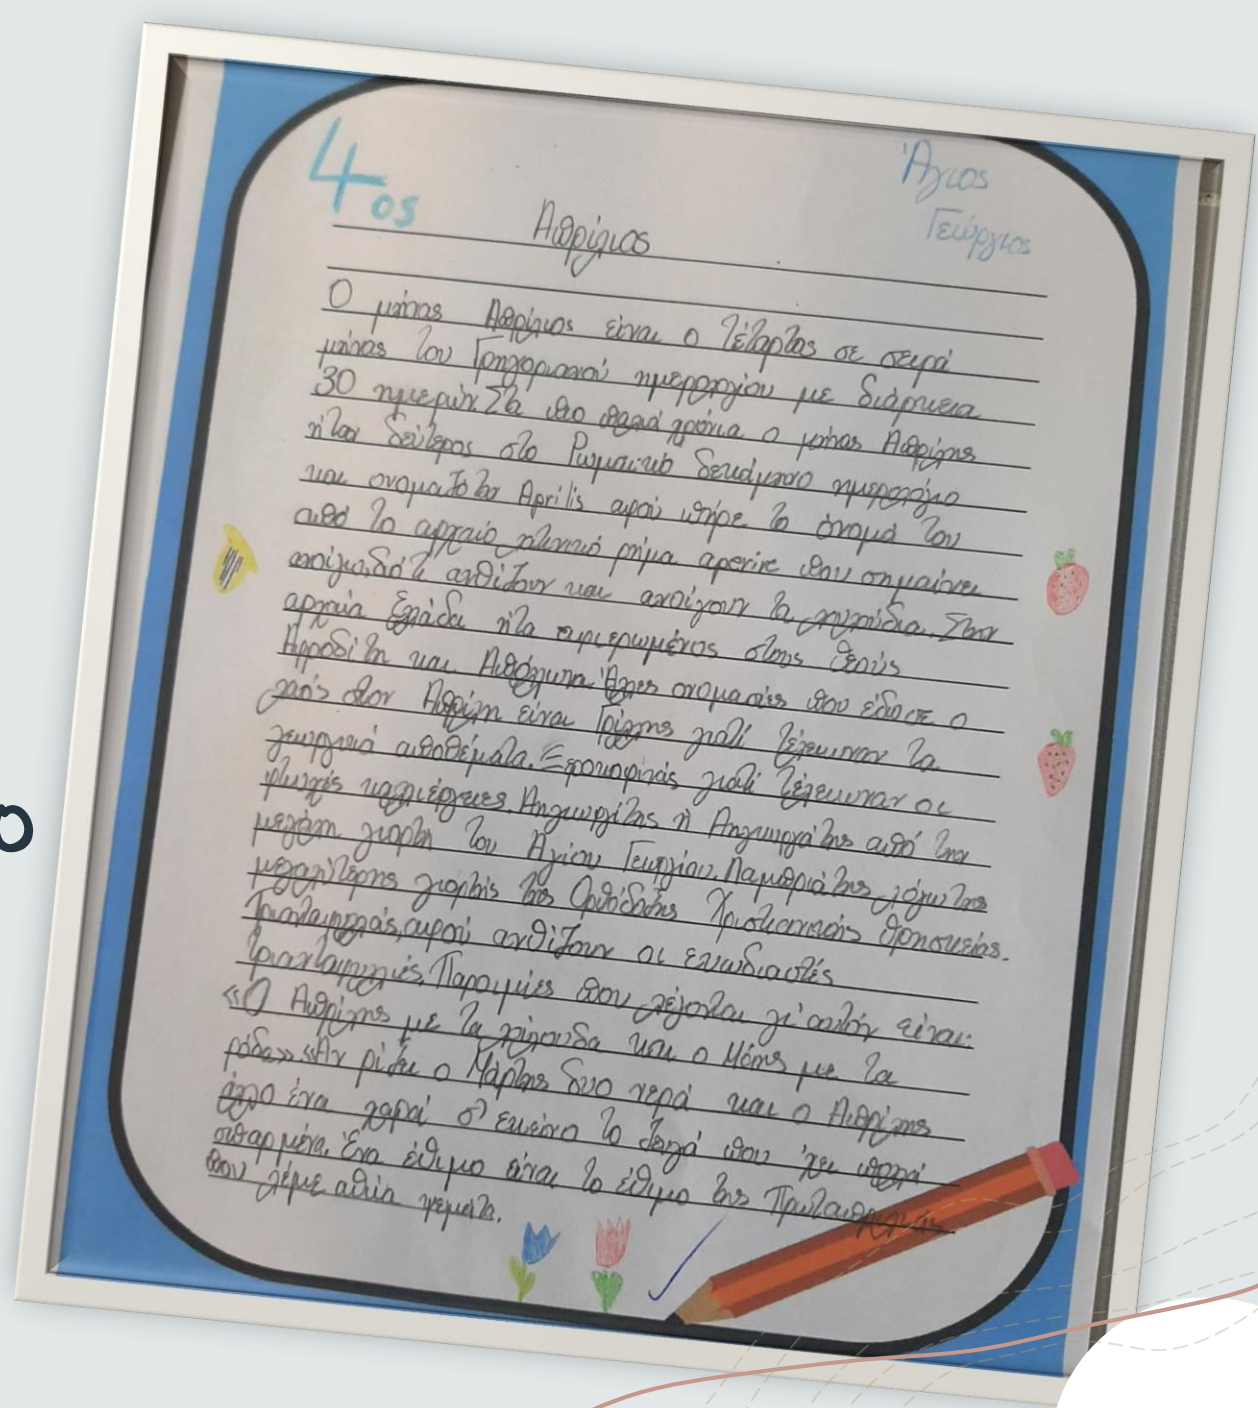 4ος
Άγιος
Γεώργιος
Απρίλιος
Ο μήνας Απρίλιος είναι ο τέταρτος σε σειρά
μήνας του Γρηγοριανού ημερολογίου με διάρκεια
30 ημερών. Στα πιο παλιά χρόνια ο μήνας Απρίλης
ήταν δεύτερος στο Ρωμαϊκό δεκάμηνο ημερολόγιο
και ονομαζόταν Aprilis αφού πήρε το όνομά του
από το αρχαίο λατινικό ρήμα aperire που σημαίνει
ανοίγω, διότι ανθίζουν και ανοίγουν τα λουλούδια. Στην
αρχαία Ελλάδα ήτα αφιερωμένος στους θεούς
Αφροδίτη και Απόλλωνα. Άλλες ονομασίες που έδωσε ο
λαός στον Απρίλη είναι Γρίλλης γιατί τέλειωναν τα
γεωργικά αποθέματα. Ξεροκοφινάς γιατί τέλειωναν οι
φτωχές καλλιέργειες. Αηγιωργίτης ή Αηγιωργάτης από την
μεγάλη γιορτή του Αγίου Γεωργίου. Λαμπριάτης λόγω της
μεγαλύτερης γιορτής της Ορθόδοξης Χριστιανικής θρησκείας.
Τριανταφυλλάς, αφού ανθίζουν οι ευωδιαστές
τριανταφυλλιές. Παροιμίες που λέγονται γι' αυτόν είναι:
«Ο Απρίλης με τα λούλουδα και ο Μάης με τα
ρόδα» «Αν ρίξει ο Μάρτης δυο νερά και ο Απρίλης
άλλο ένα χαρά σ' εκείνο το ζευγά που 'χει πολλά
σπαρμένα. Ένα έθιμο είναι το έθιμο της Πρωταπριλιάς
που λέμε αθώα ψεματα.